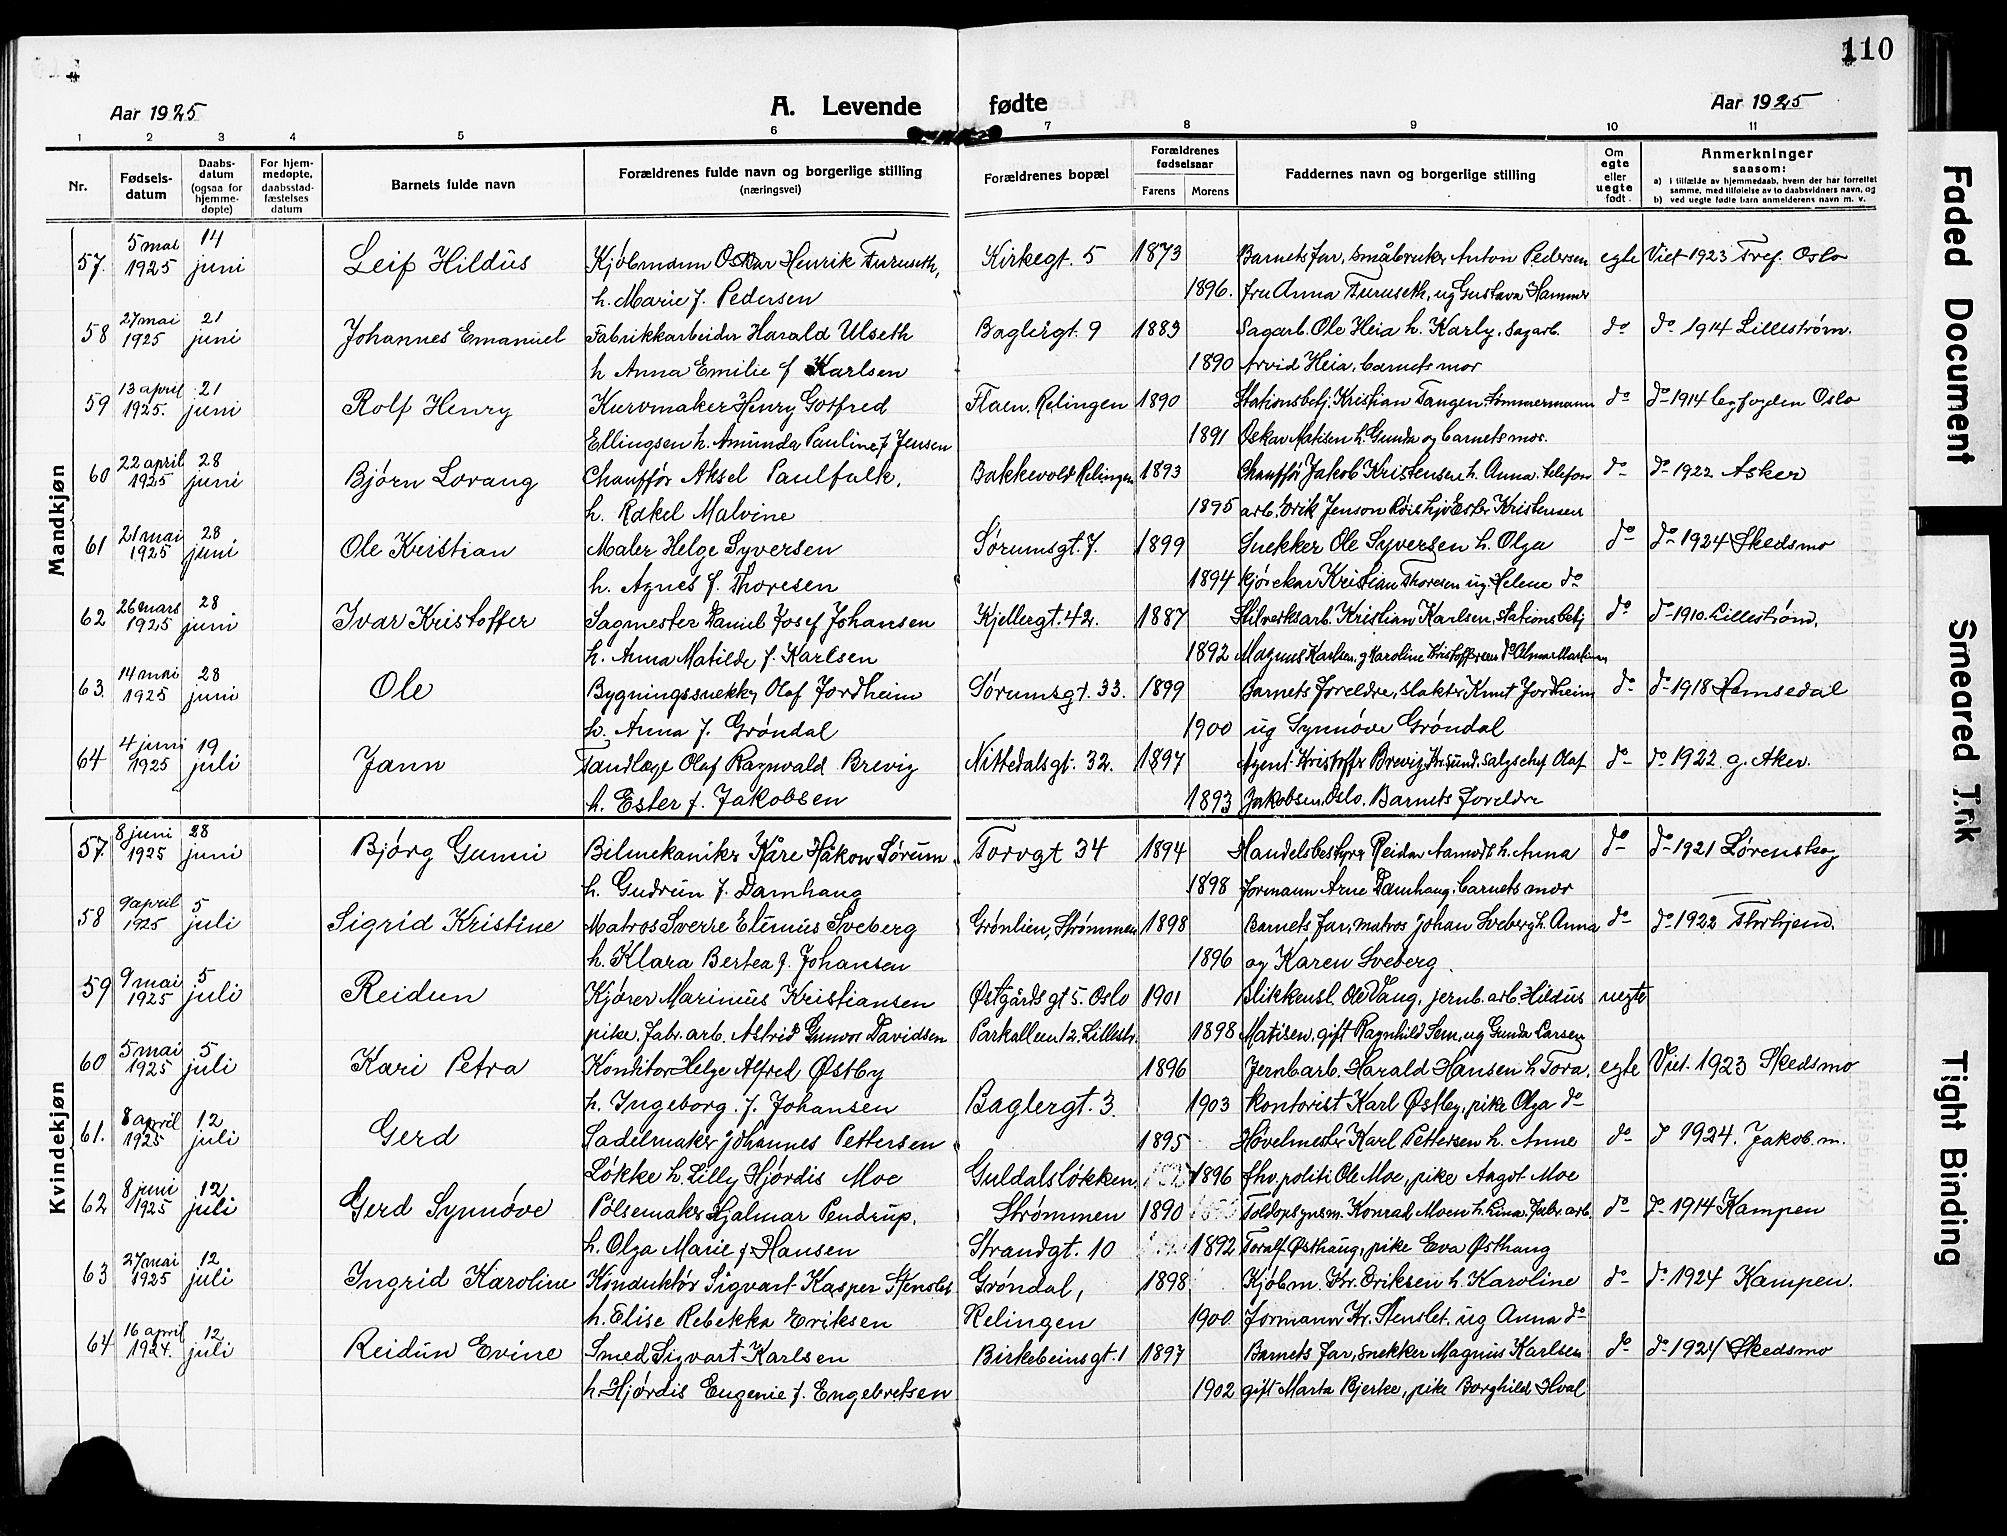 110
Aar 1925
A. Levende fødte
Aar 1925
1 2 3 4 5 6 7 8 9 10 11
Nr.
Fødsels-
datum
Daabs-
datum
(ogsaa for
hjemme-
døpte)
For hjem-
medøpte,
daabsstad-
fæstelses
datum
Barnets fulde navn
Forældrenes fulde navn og borgerlige stilling
(næringsvei)
Forældrenes bopæl
Forældrenes
fødselsaar
Farens Morens
Faddernes navn og borgerlige stilling
Om
egte
eller
uegte
født
Anmerkninger
saasom:
a) i tilfælde av hjemmedaab, hvem der har forrettet
samme, med tilføielse av to daabsvidners navn, og
b) ved uegte fødte barn anmelderens navn m. v.
Mandkjøn
57. 5 mai 1925 14 juni Leif Hildus Kjøbmann Oskar Henrik Furuseth, Kirkegt. 5 1873 Barnets far, småbruker Anton Pedersen egte Viet 1923 Tref. Oslo
h. Marie f. Pedersen 1896. fru Anna Furuseth, ug Gustava Hammer
58 27 mai 1925 21 juni Johannes Emanuel Fabrikkarbeider Harald Ulseth Baglergt. 9 1883 Sagarb. Ole Heia h. Karly, sagarb. do do 1914 Lillestrøm.
h Anna Emilie f Karlsen 1890 Arvid Heia, barnets mor
59 13 april 1925. 21 juni Rolf Henry Kurvmaker Henry Gotfred Flaen, Relingen 1890 Stationsbetj. Kristian Tangen tømmermann do do 1914 byfogden Oslo
Ellingsen h. Amunda Pauline f Jensen 1891 Oskar Matisen h. Gunda og barnets mor.
60 22 april 1925 28 juni Bjørn Lorang Chauffør Aksel Paulfalk, Bakkevold Relingen 1893 Chauffør Jakob Kristensen h. Anna, telefon do do 1922 Asker
h. Rakel Malvine 1895 arb. Erik Jenson Ester Kristensen
61 21 mai 1925 28 juni Ole Kristian Maler Helge Syversen Sørumsgt. 7. 1899 Snekker Ole Syversen h. Olga do do 1924 Skedsmo
h. Agnes f. Thoresen 1894 kjørekar Kristian Thoresen ug. Helene do
62 26 mars 1925 28 juni Ivar Kristoffer Sagmester Daniel Josef Johansen Kjellergt. 42. 1887 Kristian Karlsen, stationsbetj do do 1910. Lillestrøm.
h. Anna Matilde f. Karlsen 1892 Magnus Karlsen, g Karoline Kristoffersen do
63. 14 mai 1925 28 juni Ole Bygningssnekker Olaf Jordheim Sørumsgt. 33. 1899 Barnets foreldre, slakter Knut Jordheim do do 1918 Hemsedal
h. Anna f. Grøndal 1900 ug Synnøve Grøndal
64 4 juni 1925 19 juli Jann Tandlæge Olaf Ragnvald Brevig Nittedalsgt. 32. 1897 Agent Kristoffer Brevig, Kr.sund, salgschef Olaf do do 1922 g. Aker.
h. Ester f. Jakobsen 1893 Jakobsen, Oslo. Barnets foreldre
Kvindekjøn
57. 8 juni 1925 28 juni Bjørg Gunni Bilmekaniker Kåre Håkon Sørum Torvgt 34 1894 Handelsbestyrer Reidar Aamodt h. Anna do do 1921 Lørenskog
h. Gudrun f. Damhaug 1898 formann Arne Damhaug, barnets mor
58 9 april 1925 5 juli Sigrid Kristine Matros Sverre Elenius Sveberg Grønlien, Strømmen 1898 Barnets far, matros Johan Sveberg h. Anna do do 1922 Thrhjem.
h. Klara Bertea f. Johansen 1896 og Karen Sveberg.
59 9 mai 1925 5 juli Reidun Kjører Marinius Kristiansen Østgårds gt 5. Oslo 1901 Blikkensl. Ole Vaug, jernb. arb. Hildus uegte
pike, fabr. arb. Astrid Gunvor Davidsen Parkalleen 12. Lillestr. 1898 Matisen, gift Ragnhild Sem, ug Gunda Larsen
60 5 mai 1925 5 juli Kari Petra Konditor Helge Alfred Østby 1896 Jernb arb. Harald Hansen h. Tora, egte Viet. 1923 Skedsmo
h. Ingeborg. f. Johansen Baglergt. 3 1903 kontorist Karl Østby, pike Olga do
61. 8 april 1925 12 juli Gerd Sadelmaker Johannes Pettersen 1895 Høvelmester Karl Pettersen h. Anne do d 1924. Jakob. m.
Løkke h. Lilly Hjørdis Moe Guldalsløkken 1896 fhv. politi Ole Moe, pike Aagot Moe
62 8 juni 1925 12 juli Gerd Synnøve Pølsemaker Hjalmar Pendrup, Strømmen 1890 Toldopsynsm. Konrad Moen h. Lina, fabr. arb. do do 1914 Kampen
h. Olga Marie f Hansen Strandgt. 10 1892 Toralf Østhaug, pike Eva Østhaug
63 27 mai 1925 12 juli Ingrid Karoline Konduktør Sigvart Kasper Stenslet Grøndal, 1898 Kjøbm. Kr. Eriksen h Karoline do do 1924 Kampen.
h. Elise Rebekka Eriksen Relingen 1900 formann Kr. Stenslet, ug Anna do
64 16 april 1924. 12 juli Reidun Evine Smed Sigvart Karlsen Birkebeinsgt. 1 1897 Barnets far, snekker Magnus Karlsen do do 1924 Skedsmo
h. Hjørdis Eugenie f. Engebretsen 1902 gift Marta Bjerke, pike Borghild Hval
Faded Document
Smeared Trk
Tight Binding